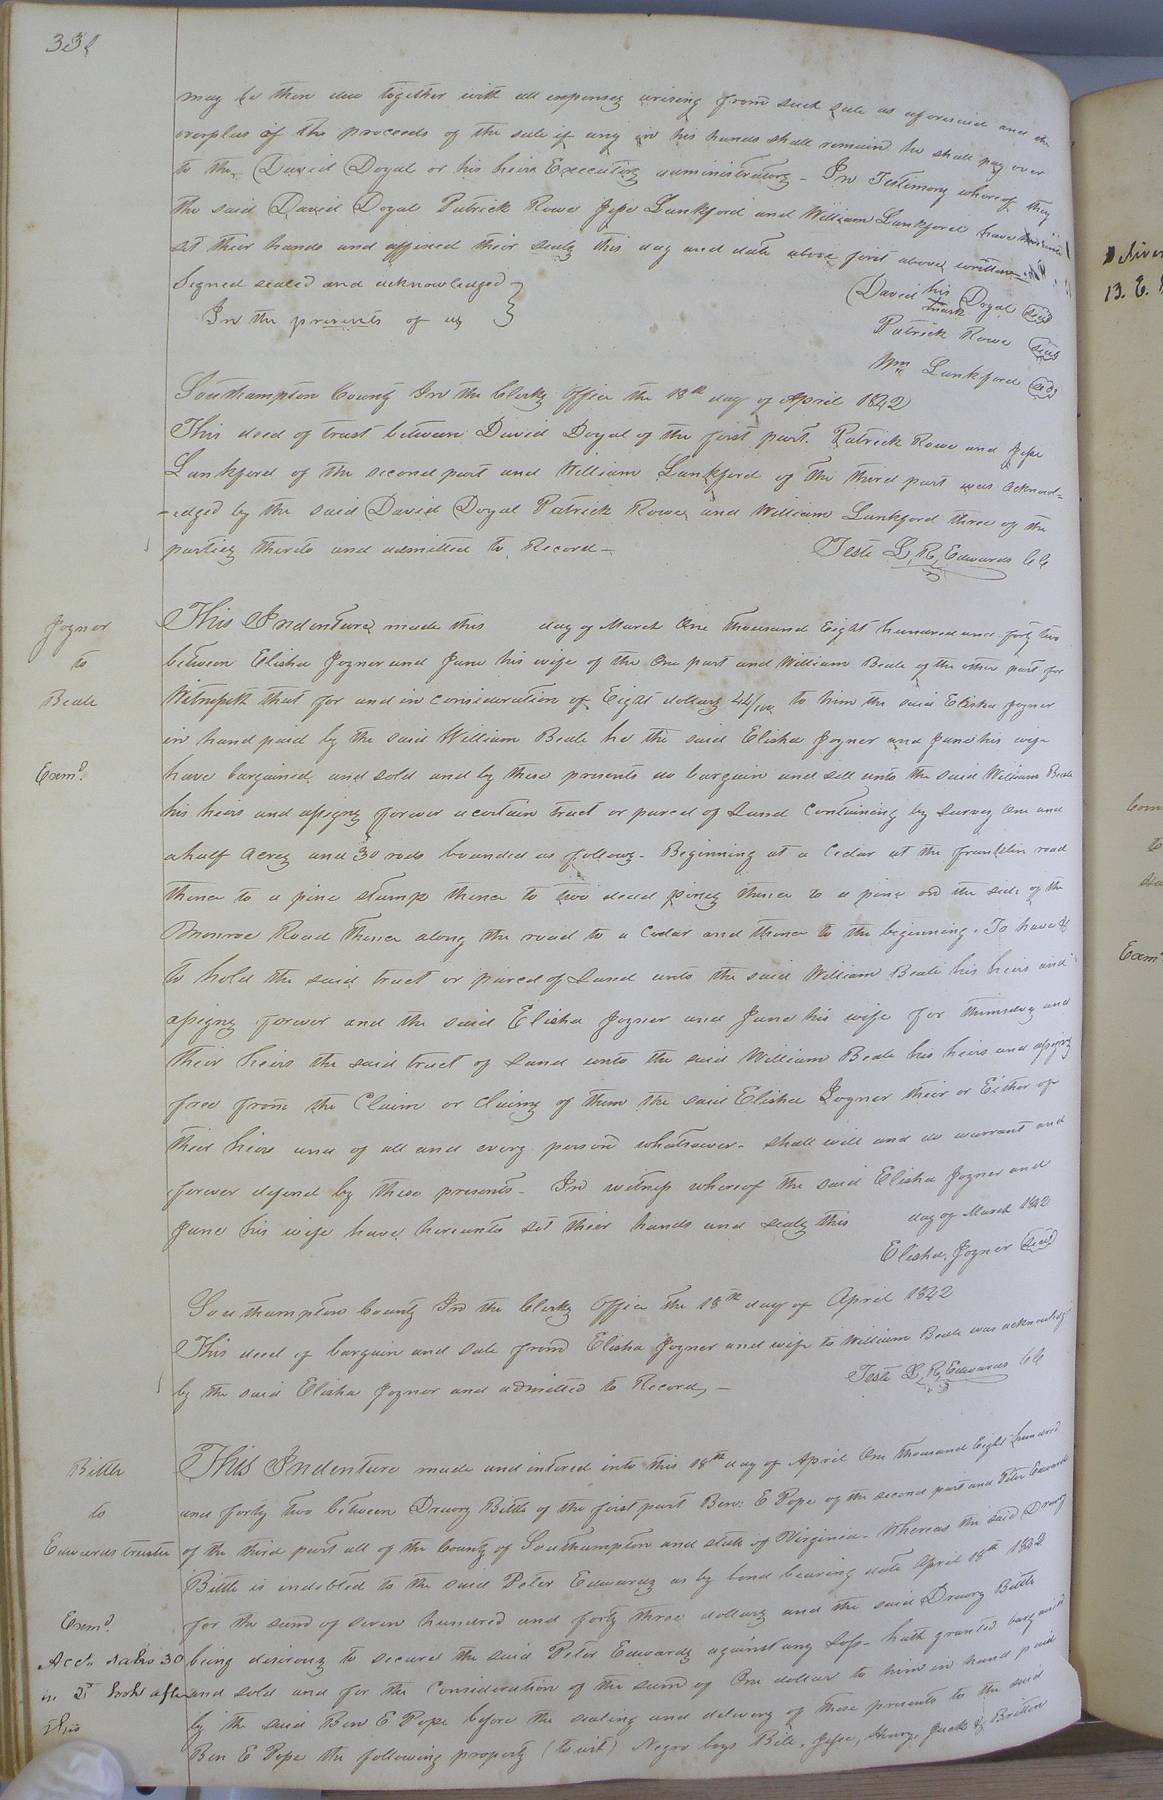 332
may be then due together with all expenses arising from such sale as aforesaid and the
overplus of the proceeds of the sale if any in his hands shall remain he shall pay over
to the David Doyal or his heirs Executors administrators - In Testimony whereof they
the said David Doyal Patrick Rowe Jesse Lankford and William Lankford have hereunto
set their hands and affixed their seals this day and date above first above written
Signed sealed and acknowledged
In the presents of us
David his mark Doyal (seal)
Patrick Rowe (seal)
Wm Lankford (seal)
Southampton County In the Clerks Office the 18th day of April 1842
This deed of trust between David Doyal of the first part. Patrick Rowe and Jesse
Lankford of the second part and William Lankford of the third part was acknowl=
-edged by the said David Doyal Patrick Rowe and William Lankford three of the
parties thereto and admitted to Record -
Teste L. R. Edwards CC
Joyner
to
Beale
Examd.
This Indenture made this day of March One thousand Eight hundred and forty two
between Elisha Joyner and Jane his wife of the One part and William Beale of the other part for
Witnesseth that for and in consideration of Eight dollars 44/100 to him the said Elisha Joyner
in hand paid by the said William Beale he the said Elisha Joyner and Jane his wife
have bargained and sold and by these presents do bargain and sell unto the said William Beale
his heirs and assigns forever a certain tract or parcel of Land Containing by Survey One and
a half Acres and 30 rods bounded as follows - Beginning at a Cedar at the franklin road
thence to a pine stump thence to two dead pines thence to a pine on the side of the
Monroe Road thence along the road to a Cedar and thence to the beginning. To have &
to hold the said tract or parcel of Land unto the said William Beale his heirs and
assigns forever and the said Elisha Joyner and Jane his wife for themselves and
their heirs the said tract of Land unto the said William Beale his heirs and assigns
free from the Claim or Claims of them the said Elisha Joyner their or Either of
their heirs and of all and every person whatsoever - shall will and do warrant and
forever defend by these presents - In witness whereof the said Elisha Joyner and
Jane his wife have hereunto set their hands and seals this day of March 1842
Elisha Joyner (seal)
Southampton County In the Clerks Office the 18th day of April 1842
This deed of bargain and sale from Elisha Joyner and wife to William Beale was acknowledgd
by the said Elisha Joyner and admitted to Record, -
Teste L. R. Edwards CC
Bittle
to
Edwards trustee
Examd.
This Indenture made and intered into this 18th day of April One thousand Eight hundred
and forty two between Drewry Bittle of the first part Ben: E Pope of the second part and Peter Edwards
of the third part all of the County of Southampton and state of Virginia - Whereas the said Drewry
Bittle is indebted to the said Peter Edwards as by bond bearing date April 18th 1842
for the sum of seven hundred and forty three dollars and the said Drewry Bittle
being desirous to secure the said Peter Edwards against any Loss - hath granted bargained
and sold and for the Consideration of the sum of One dollar to him in hand paid
by the said Ben E Pope before the sealing and delivery of these presents to the said
Ben E Pope the following property (to wit) Negro boys Bill, Jesse, Henry, Jack & Britten